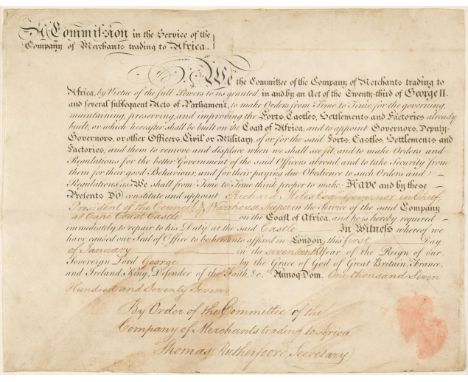 A Commission in the Service of the
Company of Merchants trading to Africa.
We the Committee of the Company of Merchants trading to
Africa, by Virtue of the full Powers to us granted, in and by an Act of the Twenty-third of George II.
and several subsequent Acts of Parliament, to make Orders from Time to Time for the governing,
maintaining, preserving, and improving the Forts, Castles, Settlements and Factories already
built, or which hereafter shall be built on the Coast of Africa, and to appoint Governors, Deputy-
Governors, or other Officers, Civil or Military, of or for the said Forts, Castles, Settlements and
Factories, and them to remove and displace when we shall see fit, and to make Orders and
Regulations for the better Government of the said Officers abroad, and to take Security from
them for their good Behaviour, and for their paying due Obedience to such Orders and
Regulations as We shall from Time to Time think proper to make Have and by these
Presents Do constitute and appoint Richard Miles Esq. Governor in Chief
President of the Council & Warehouse keeper in the Service of the said Company
at Cape Coast Castle on the Coast of Africa, and he is hereby required
immediately to repair to his Duty at the said Castle In Witness whereof we
have caused our Seal of Office to be hereto affixed in London, this first Day
of January in the seventeenth Year of the Reign of our
Sovereign Lord George by the Grace of God of Great Britain, France,
and Ireland, King, Defender of the Faith, &c. Annoq. Dom. One thousand Seven
Hundred and Seventy Seven
By Order of the Committee of the
Company of Merchants trading to Africa
Thomas Rutherfoord Secretary